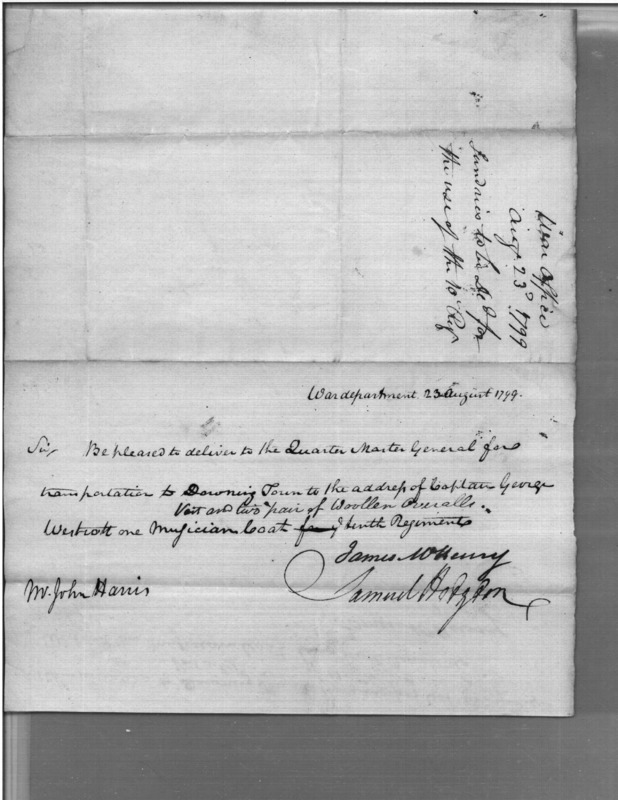 War Office
Augt 23d 1799
Sundries to be Dd for
the use of the 10 Regt
War department 23 August 1799.
Sir, Be pleased to deliver to the Quarter Master General for
transportation to Downing Town to the address of Captain George
Vest and two pair of Woollen Overalls.
Westcott one Musician Coat for ye tenth Regiment
James McHenry
Samuel Hodgdon
Mr. John Harris